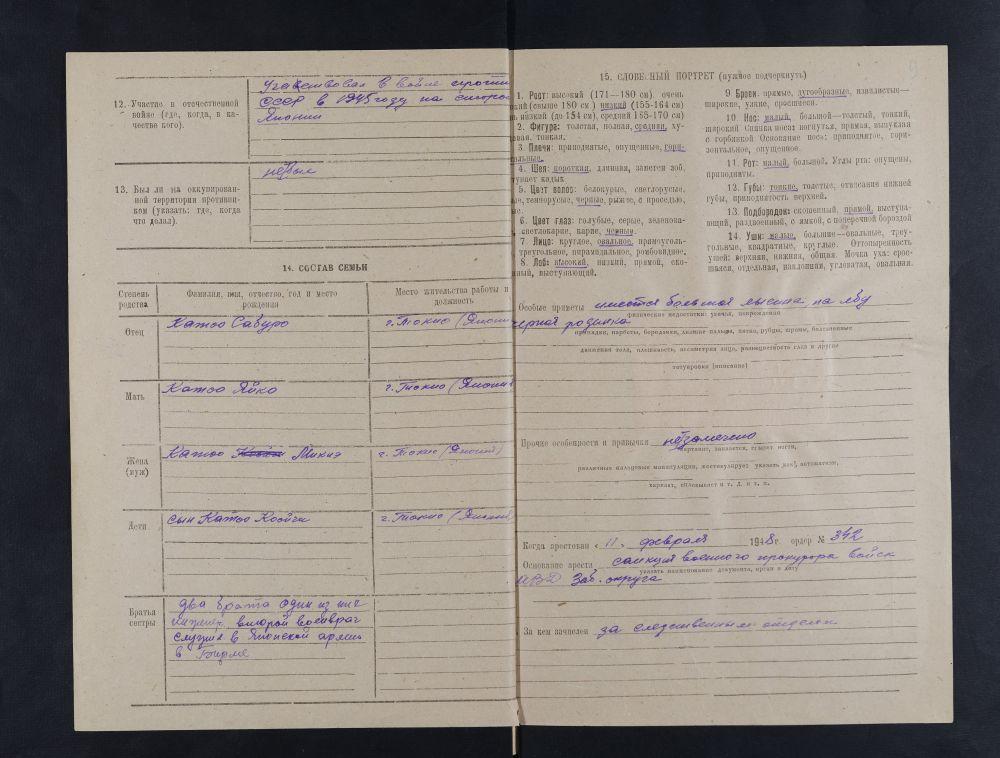 12. Участие в отечественной
войне (где, когда, в ка-
честве кого).
Участвовал в войне против
СССР в 1945 году на стороне
Японии
13. Был ли на оккупирован-
ной территории противни-
ком (указать: где, когда
что делал).
не был
14. СОСТАВ СЕМЬИ
Степень
родства
Фамилия, имя, отчество, год и место
рождения
Место жительства работы и
должность
Отец
Катоо Сабуро
г. Токио (Япони
Мать
Катоо Яйко
г. Токио (Япония
Жена
(муж)
Катоо Микиэ
г. Токио (Япония)
Дети
сын Катоо Коойчи
г. Токио (Япония
Братья
сестры
два брата один из них
инженер, второй военврач
служил в Японской армии
в Бирме
15. СЛОВЕСНЫЙ ПОРТРЕТ (нужное подчеркнуть)
1. Рост: высокий (171—180 см) очень
кий (свыше 180 см) низкий (155-164 см)
ь низкий (до 154 см), средний 165-170 см)
2. Фигура: толстая, полная, средняя, ху-
авая, тонкая.
3. Плечи: приподнятые, опущенные, гори-
альные.
4. Шея: короткая, длинная, заметен зоб,
тупает кадык
5. Цвет волос: белокурые, светлорусые,
е, темнорусые, черные, рыжие, с проседью,
ые.
6. Цвет глаз: голубые, серые, зеленова-
светлокарие, карие, черные.
7. Лицо: круглое, овальное, прямоуголь-
треугольное, пирамидальное, ромбовидное.
8. Лоб: высокий, низкий, прямой, ско-
нный, выступающий.
9 Брови: прямые, дугообразные, извилистые—
широкие, узкие, сросшиеся.
10 Нос: малый, большой—толстый, тонкий,
широкий Спинка носа: вогнутая, прямая, выпуклая
с горбинкой Основание носа: приподнятое, гори-
зонтальное, опущенное.
11. Рот: малый, большой. Углы рта: опущены,
приподняты.
12. Губы: тонкие, толстые, отвисание нижней
губы, приподнятость верхней.
13. Подбородок: скошенный, прямой, выступа-
ющий, раздвоенный, с ямкой, с поперечной бороздой
14. Уши: малые, большие—овальные, треу-
гольные, квадратные, круглые. Оттопыренность
ушей: верхняя, нижняя, общая. Мочка уха: срос-
шаяся, отдельная, наклонная, угловатая, овальная.
Особые приметы имеется большая лысина на лбу
физические недостатки: увечья, повреждения
черная родинка
движения тела, плешивость, ассиметрия лица, разноцветность глаз и другие
татуировки (описание)
Прочие особенности и привычки незамечено
картавит, заикается, грызет ногти,
различные пальцевые манипуляции, жестикулирует указать как, автоматизм,
харкает, сплевывает и т. д. и т. п.
Когда арестован « 11 » февраля 1948 г. ордер № 342
Основание ареста санкция военного прокурора войск
указать наименование документа, орган и дату
МВД Заб. округа
За кем зачислен за следственным отделом